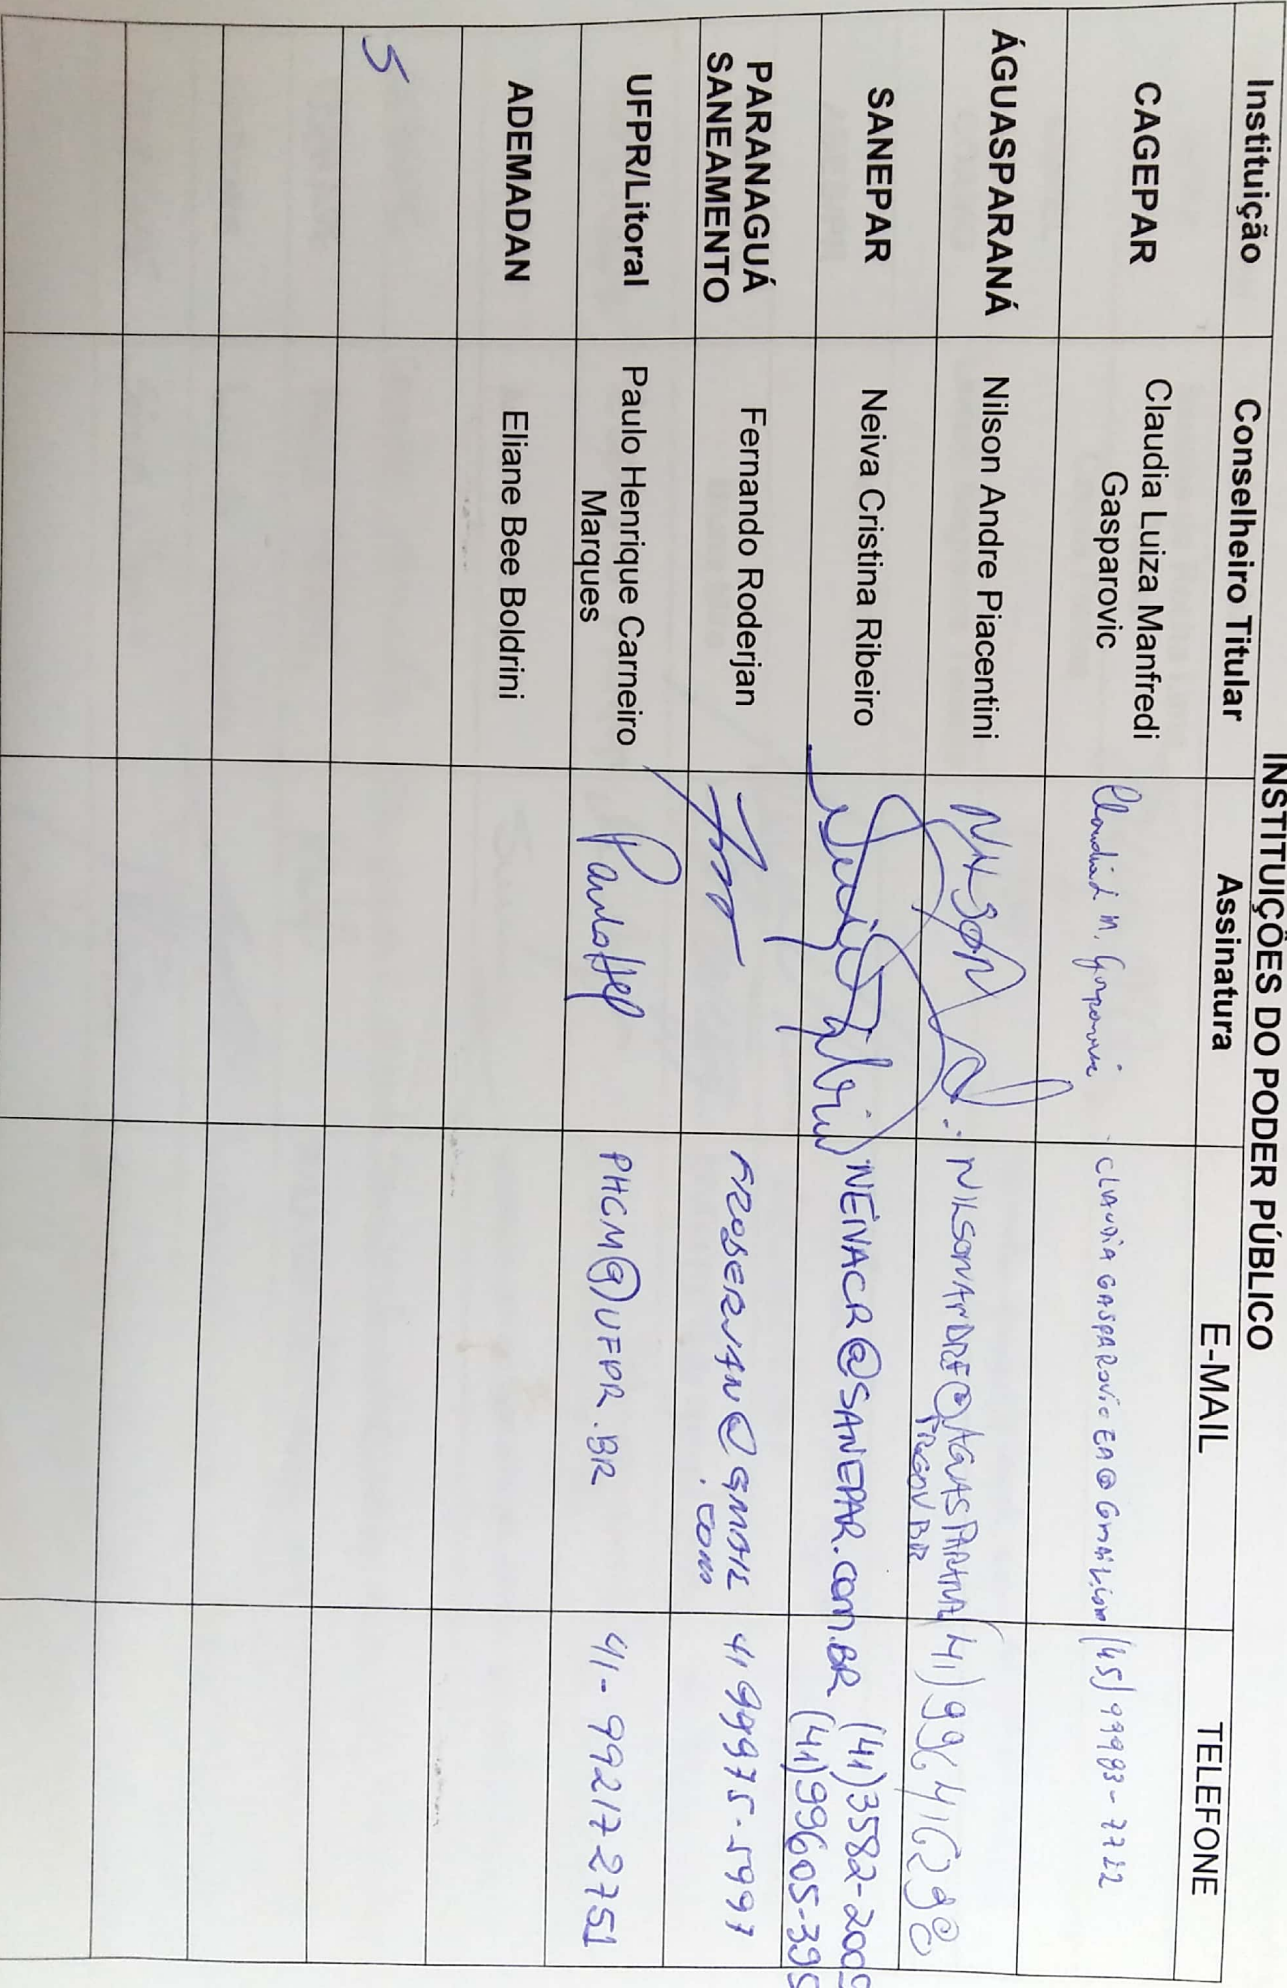 INSTITUIÇÕES DO PODER PÚBLICO
Instituição Conselheiro Titular Assinatura E-MAIL TELEFONE
CAGEPAR Claudia Luiza Manfredi Gasparovic Claudia L M. Gasparovic CLAUDIAGASPAROVICEA@GMAIL.COM (45) 99983-7722
ÁGUASPARANÁ Nilson Andre Piacentini NILSON NILSONANDRE@AGUASPARANA.PR.GOV.BR (41)996416298
SANEPAR Neiva Cristina Ribeiro NEIVACR@SANEPAR.COM.BR (41)3582-2009
(41)99605-395
PARANAGUÁ SANEAMENTO Fernando Roderjan FRODERJAN@GMAIL.COM 41 99975-5997
UFPR/Litoral Paulo Henrique Carneiro Marques Paulo PHCM@UFPR.BR 41-99217-2751
ADEMADAN Eliane Bee Boldrini
5